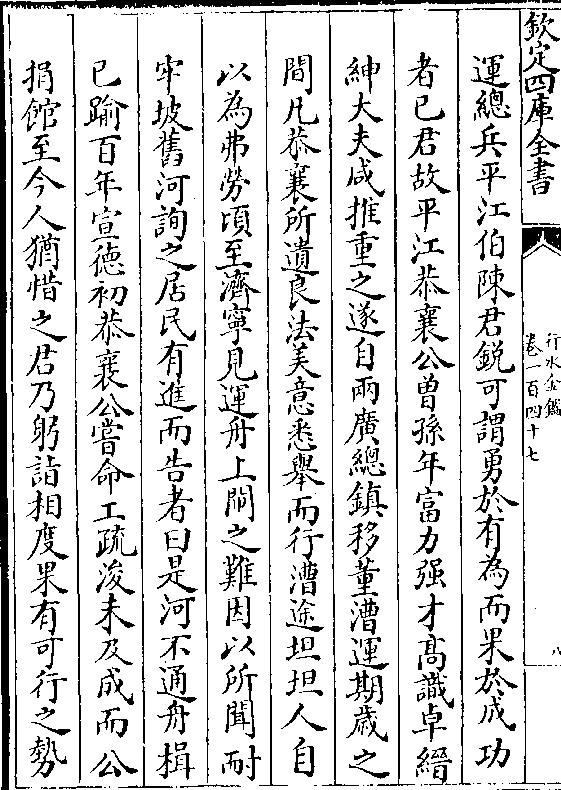 欽定四庫全書
行水金鑑
卷一百四十七
八
運總兵平江伯陳君銳可謂勇於有為而果於成功
者已君故平江恭襄公曾孫年富力强才髙識卓縉
紳大夫咸推重之遂自兩廣總鎮移董漕運期歳之
間凡恭襄所遺良法美意悉舉而行漕途坦坦人自
以為弗勞頃至濟寧見運舟上閘之難因以所聞耐
牢坡舊河詢之居民有進而告者曰是河不通舟楫
已踰百年宣徳初恭襄公嘗命工疏浚未及成而公
捐館至今人猶惜之君乃躬詣相度果有可行之勢